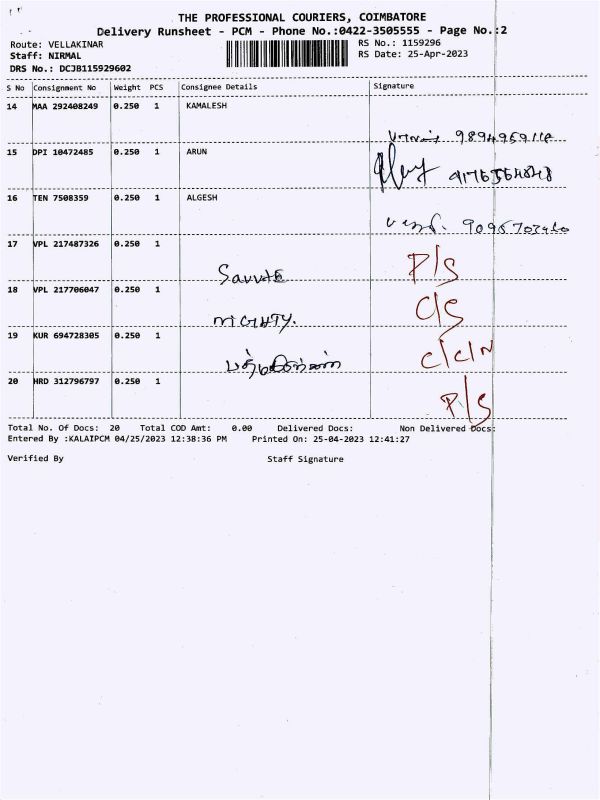 THE PROFESSIONAL COURIERS, COIMBATORE
Delivery Runsheet - PCM - Phone No.:0422-3505555 - Page No.:2
Route: VELLAKINAR
Staff: NIRMAL
DRS No.: DCJB115929602
RS No.: 1159296
RS Date: 25-Apr-2023
S No Consignment No Weight PCS Consignee Details Signature
14 MAA 292408249 0.250 1 KAMALESH
15 DPI 10472485 0.250 1 ARUN
16 TEN 7508359 0.250 1 ALGESH
17 VPL 217487326 0.250 1 P/S
18 VPL 217706047 0.250 1 C/S
19 KUR 694728305 0.250 1 C/C/N
20 HRD 312796797 0.250 1 P/S
Total No. Of Docs: 20 Total COD Amt: 0.00 Delivered Docs: Non Delivered Docs:
Entered By :KALAIPCM 04/25/2023 12:38:36 PM Printed On: 25-04-2023 12:41:27
Verified By Staff Signature